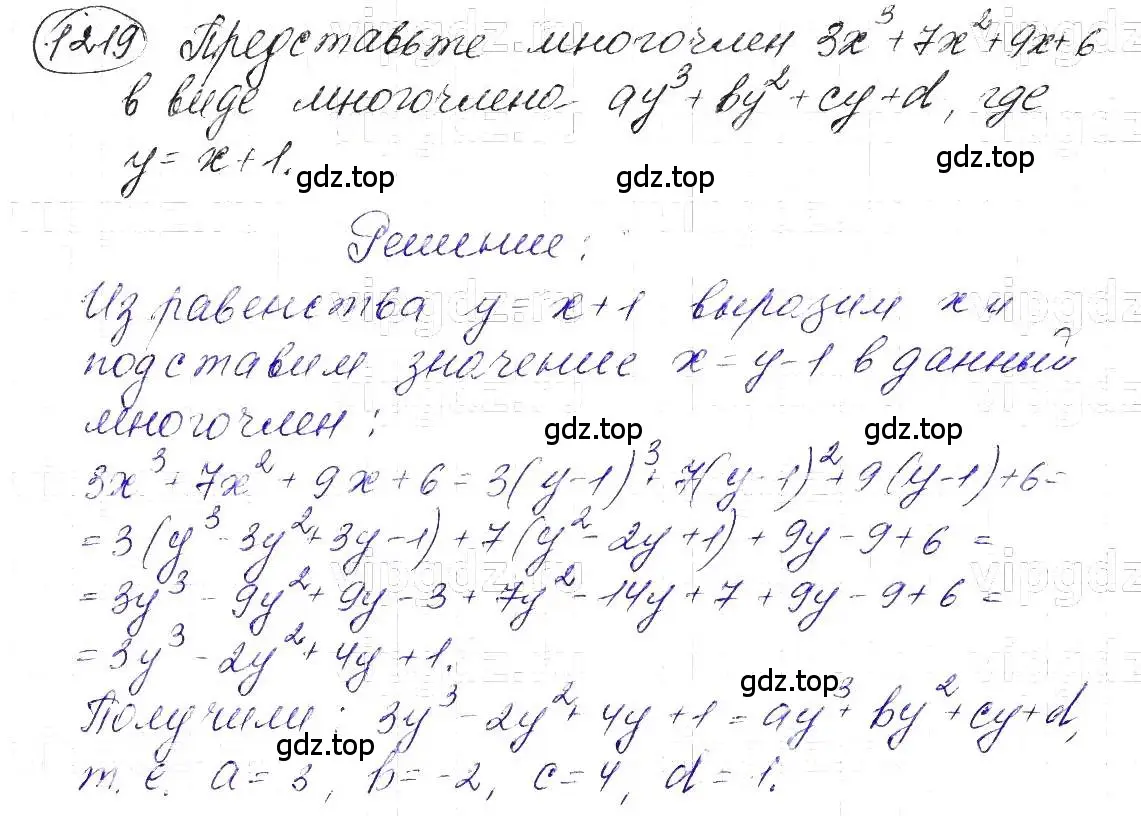 1219 Представьте многочлен 3x³+7x²+9x+6
в виде многочлена ay³+by²+cy+d, где
y = x+1.
gdz.top gdz.top gdz.top
Решение:
Из равенства y = x+1 выразим x и
подставим значение x = y-1 в данный
многочлен:
gdz.top gdz.top
3x³+7x²+9x+6 = 3(y-1)³+7(y-1)²+9(y-1)+6 =
= 3(y³-3y²+3y-1)+7(y²-2y+1)+9y-9+6 =
= 3y³-9y²+9y-3+7y²-14y+7+9y-9+6 =
= 3y³-2y²+4y+1.
gdz.top
Получили: 3y³-2y²+4y+1 = ay³+by²+cy+d,
gdz.top
т. е. a = 3, b = -2, c = 4, d = 1.